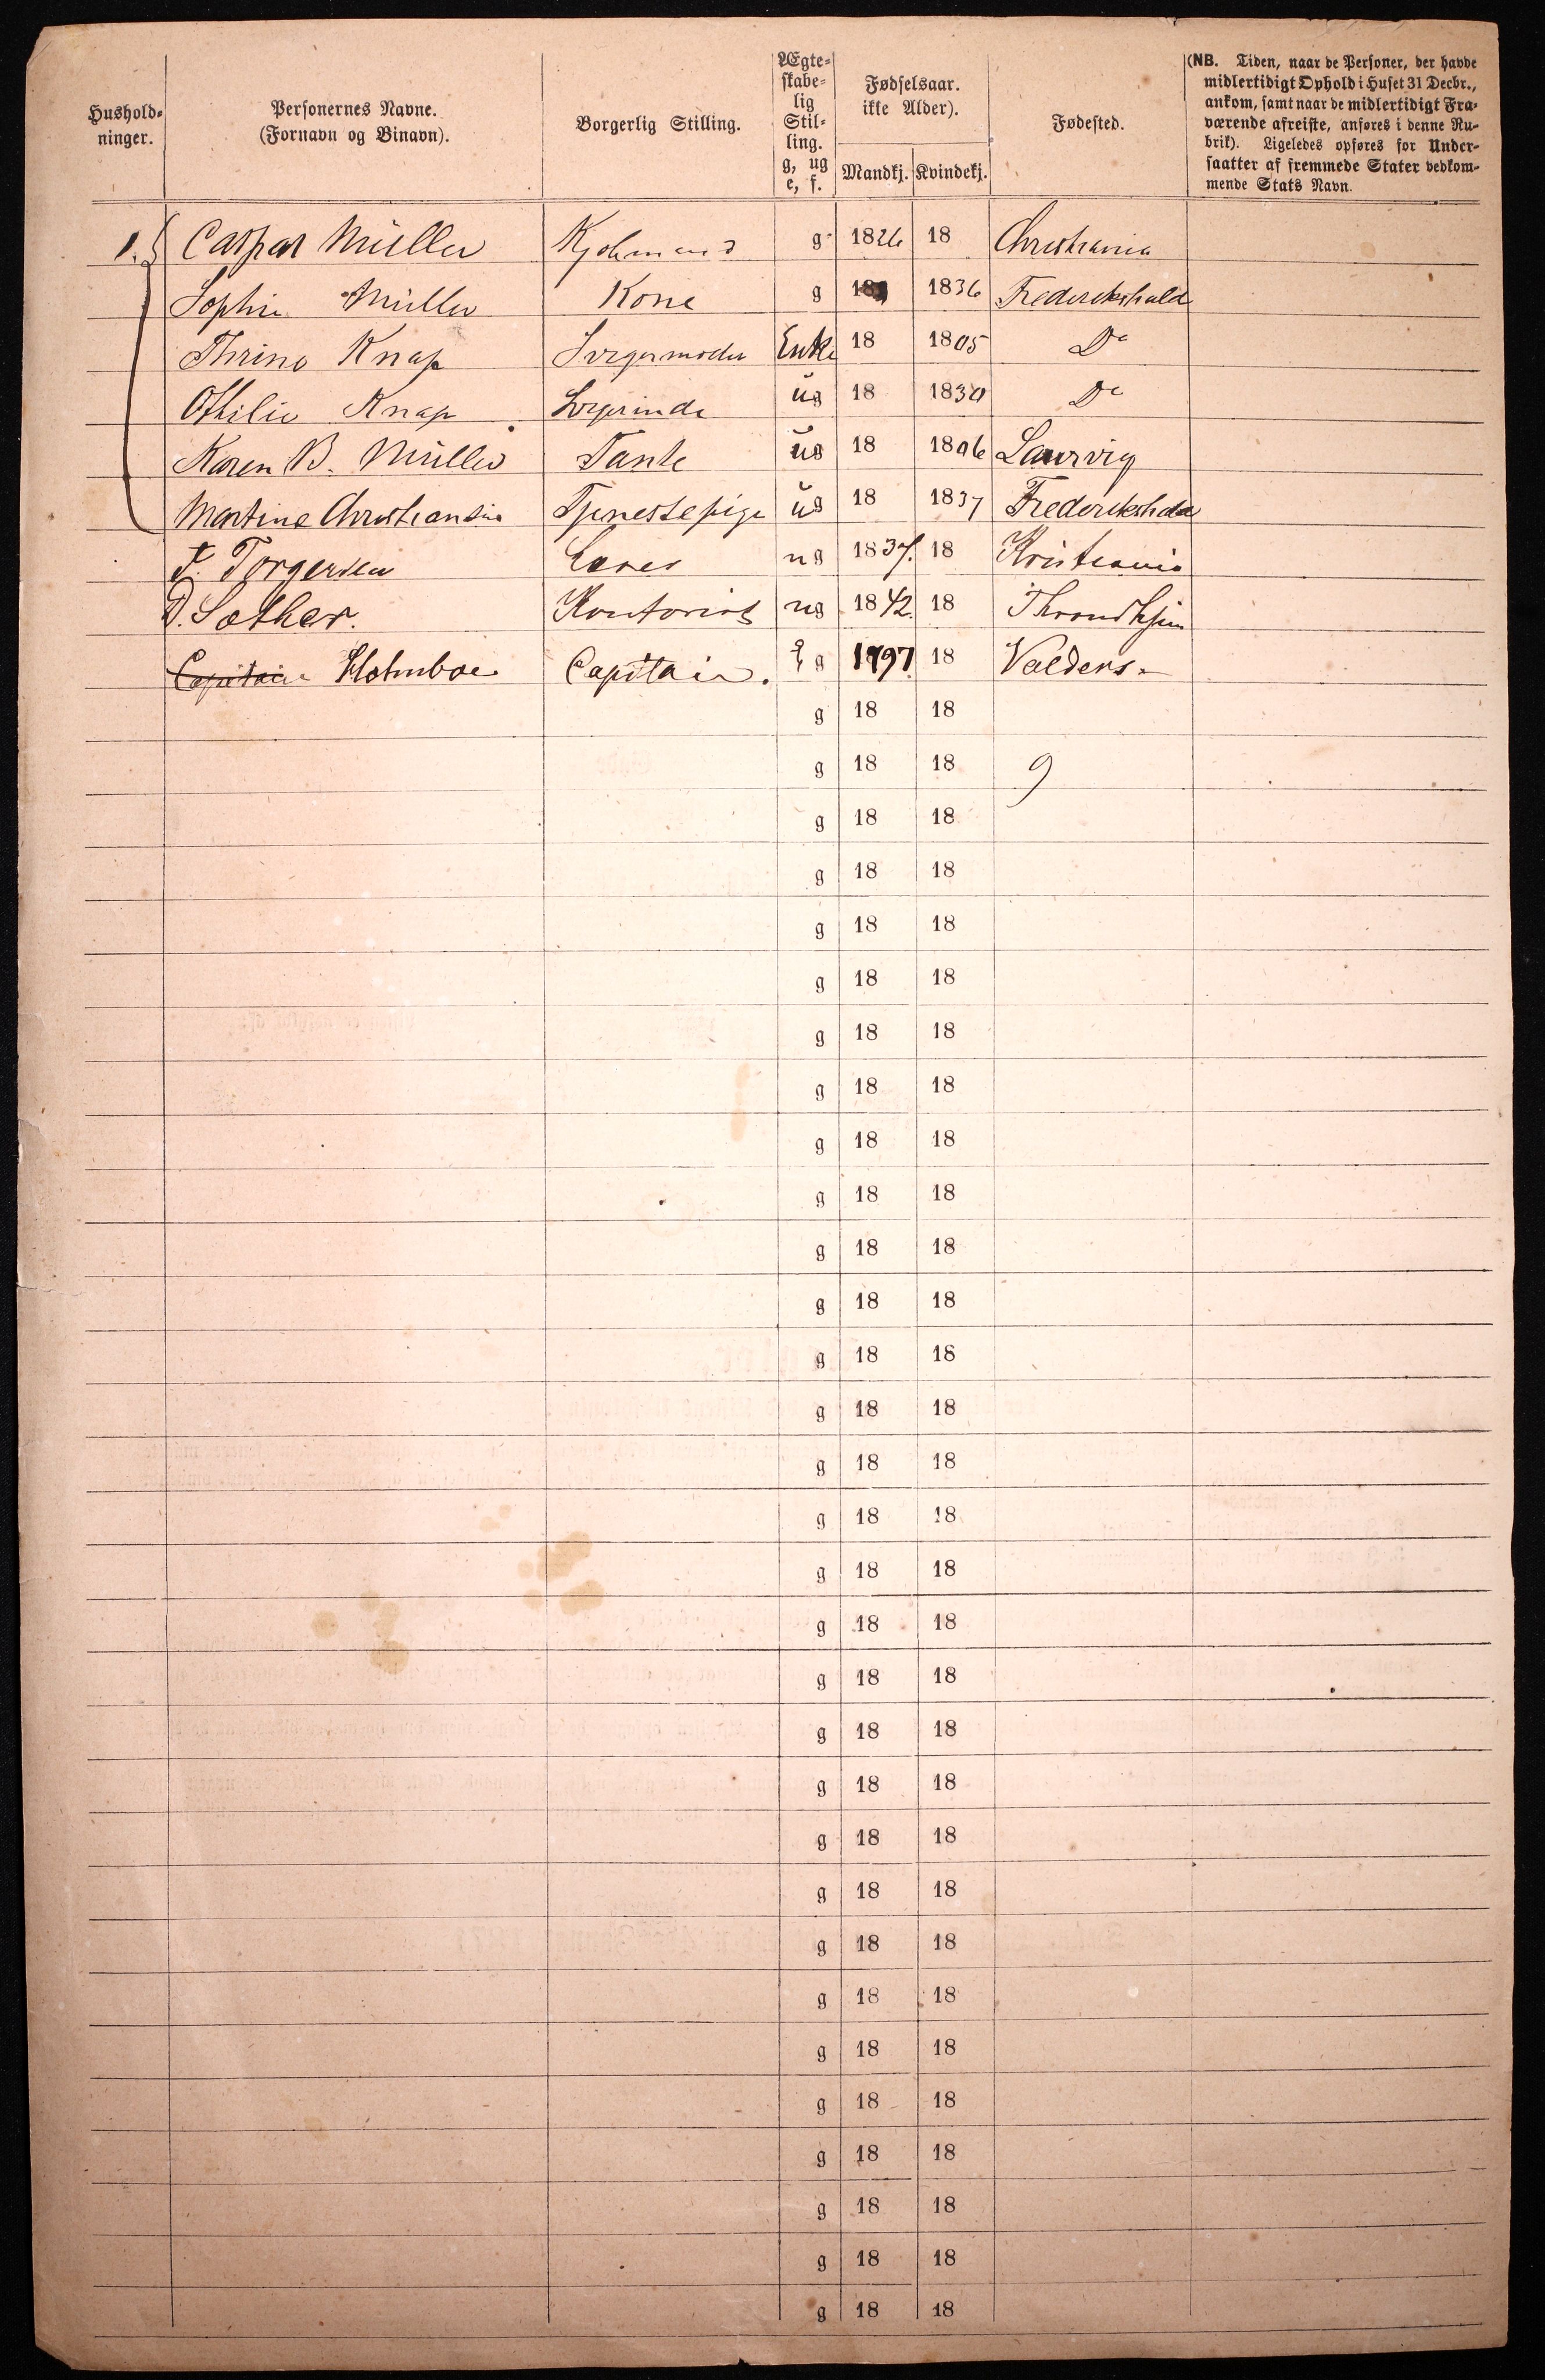 Hushold-
ninger.
Personernes Navne.
(Fornavn og Binavn).
Borgerlig Stilling.
Ægte-
skabe-
lig
Stil-
ling.
g, ug
e, f.
Fødselsaar.
ikke Alder).
Mandkj. Kvindekj.
Fødested.
(NB. Tiden, naar de Personer, der havde
midlertidigt Ophold i Huset 31 Decbr.,
ankom, samt naar de midlertidigt Fra-
værende afreiste, anføres i denne Ru-
brik). Ligeledes opføres for Under-
saatter af fremmede Stater vedkom-
mende Stats Navn.
1. Caspar Müller Kjøbmand g 1826 18 Christiania
Sophie Müller Kone g 18 1836 Frederikshald
Thrine Knap Svigermoder Enke 18 1805 Do
Othilie Knap ug 18 1830 Do
Karen B. Müller Tante ug 18 1806 Laurvig
Martine Christiansen Tjenestepige ug 18 1837 Frederikshald
F. Torgersen Eleves ug 1837. 18 Kristiania
D. Sæther. Kontorist ug 1842. 18 Throndhjem
Capitain Holmboe Capitain. g 1797 18 Valders.
g 18 18
g 18 18 9
g 18 18
g 18 18
g 18 18
g 18 18
g 18 18
g 18 18
g 18 18
g 18 18
g 18 18
g 18 18
g 18 18
g 18 18
g 18 18
g 18 18
g 18 18
g 18 18
g 18 18
g 18 18
g 18 18
g 18 18
g 18 18
g 18 18
g 18 18
g 18 18
g 18 18
g 18 18
g 18 18
g 18 18
g 18 18